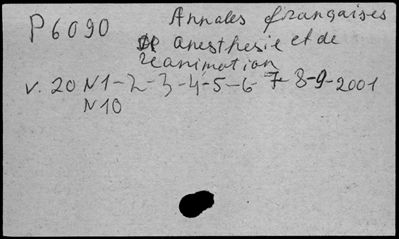 P6090
Annales françaises
anesthesie et de
reanimation
v. 20 N1-2-3-4-5-6-7-8-9-2001
N10